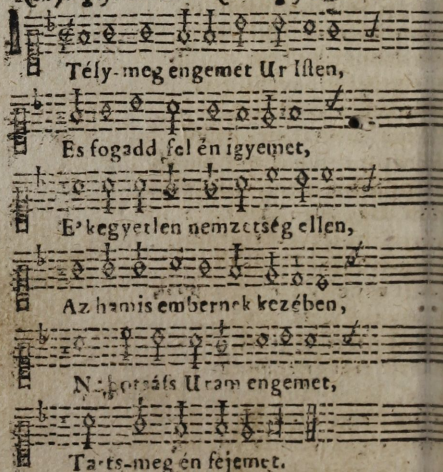 Tély-meg engemet Ur Isten,
Es fogadd fel én igyemet,
E' kegyetlen nemzetség ellen,
Az hamis embernek kezében,
Uram engemet,
Tarts-meg én fejemet.